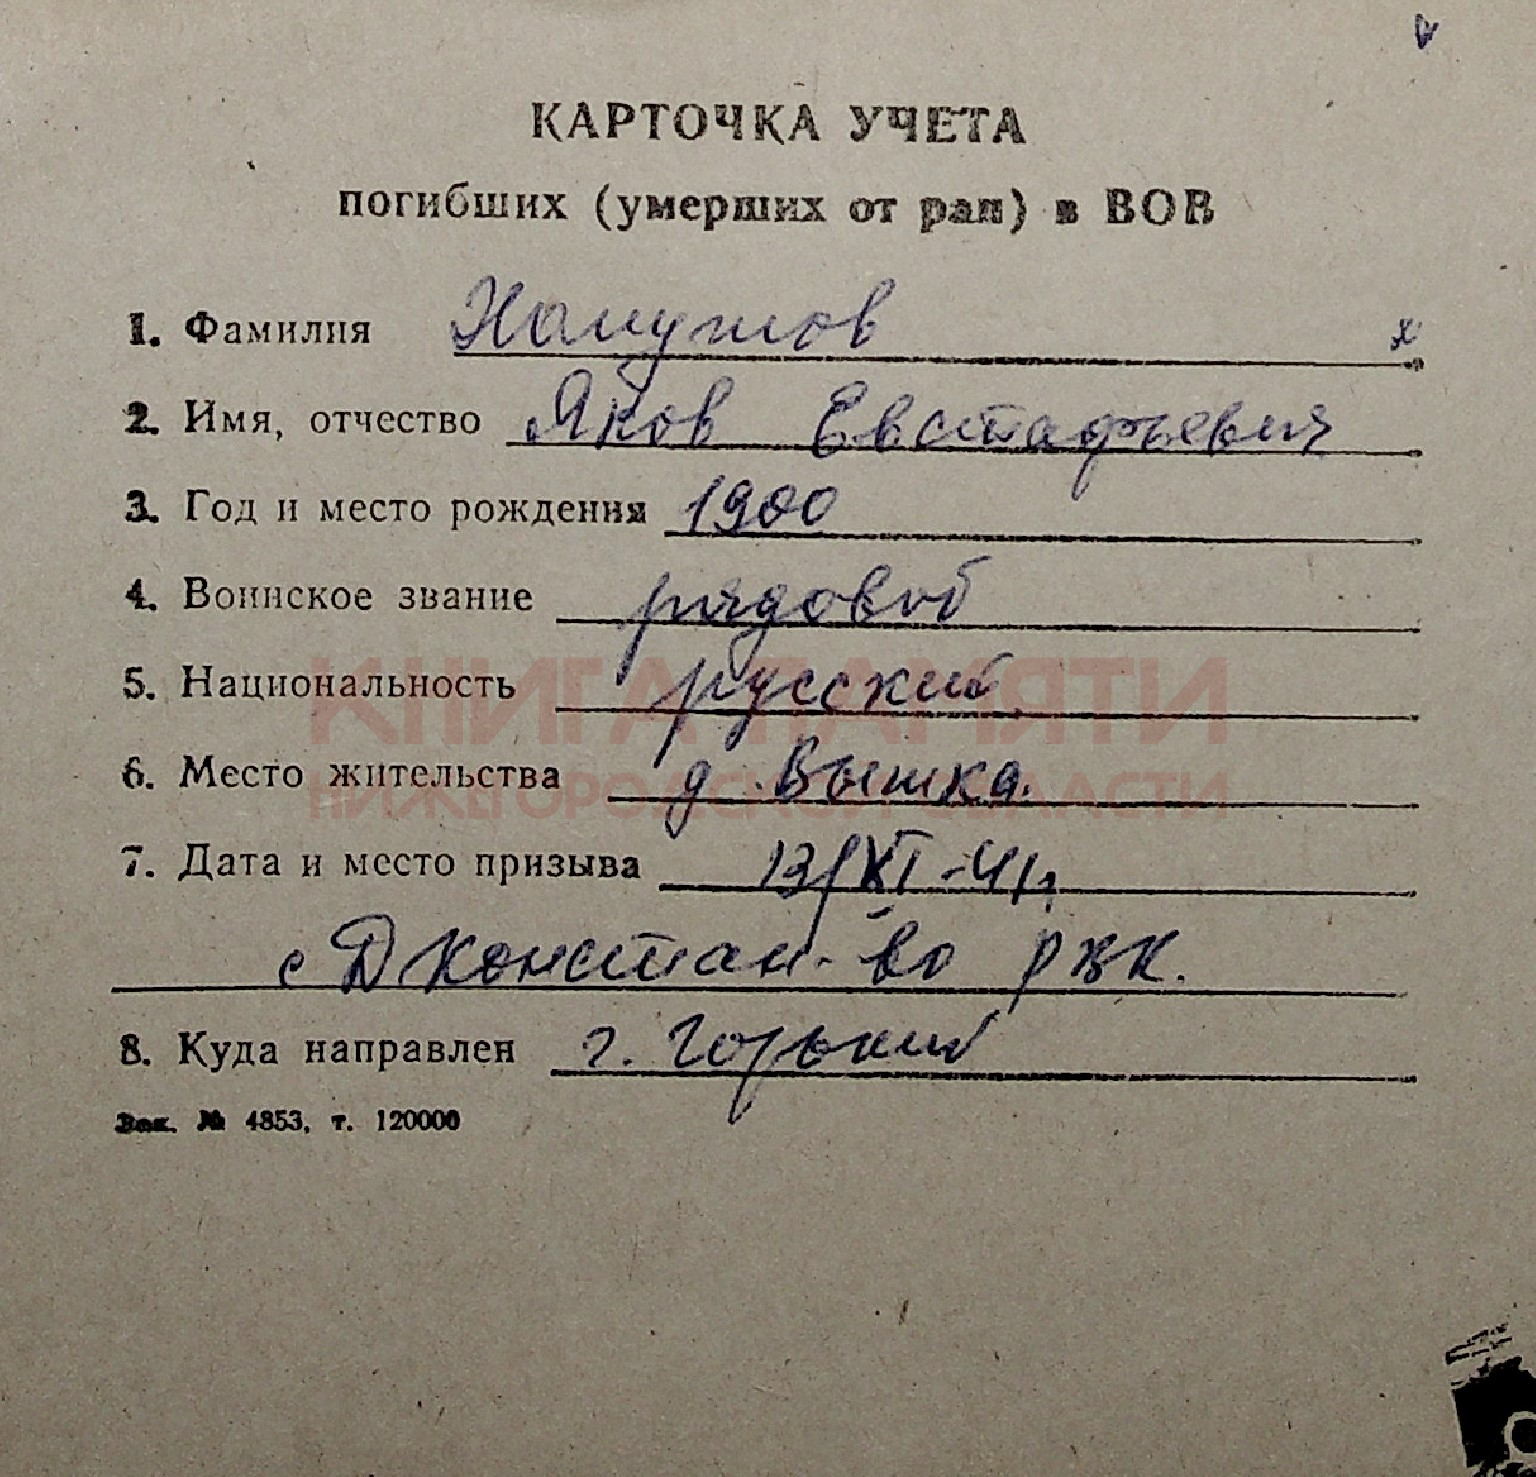 КАРТОЧКА УЧЕТА
погибших (умерших от ран) в ВОВ
1. Фамилия х
2. Имя, отчество Яков Евстафьевич
3. Год и место рождения 1900
4. Воинское звание рядовой
5. Национальность русский
КНИГА ПАМЯТИ
6. Место жительства д. Вышка.
НИЖЕГОРОДСКОЙ ОБЛАСТИ
7. Дата и место призыва 13/XI-41г
с Д Констан-во РВК.
8. Куда направлен г. Горький
Зак. № 4853, т. 120000